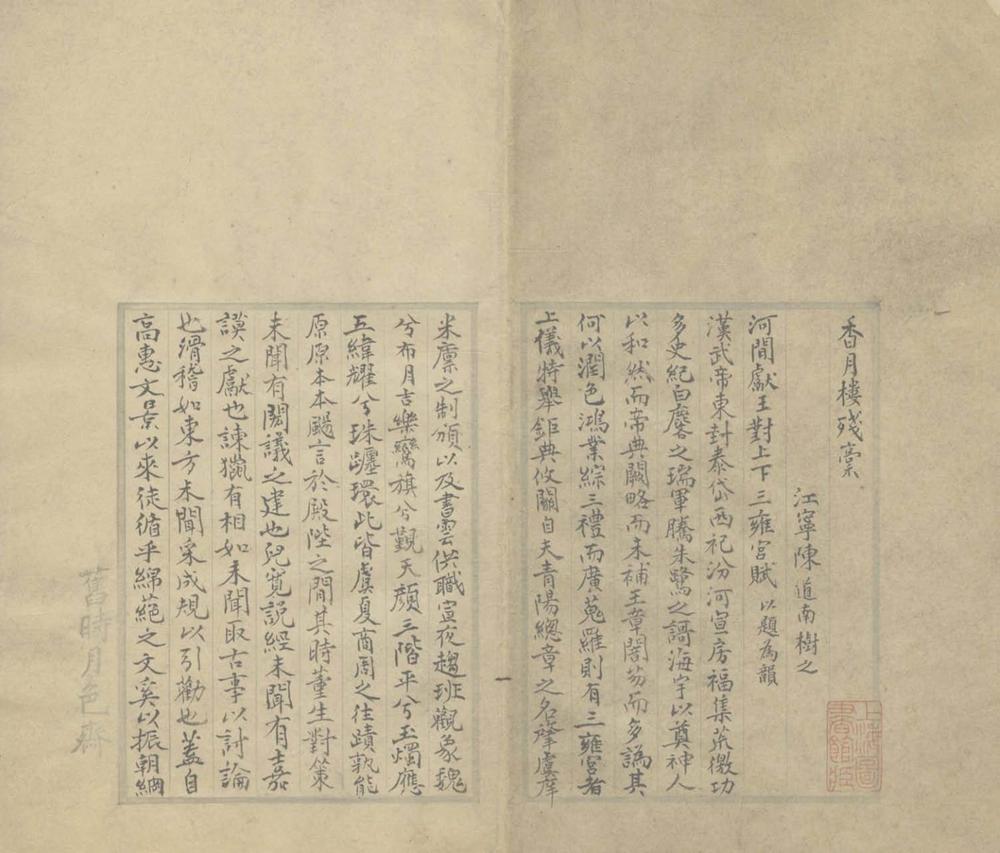 香月樓殘稾
江寧陳道南樹之
河間獻王對上下三雍宮賦 以題為韻
漢武帝東封泰岱西祀汾河宣房福集芝徵功
多史紀白麐之瑞軍騰朱鷺之謌海宇以奠神人
以和然而帝典闕略而未補王章闇芴而多譌其
何以潤色鴻業綜三禮而廣蒐羅則有三雍宮者
上儀特舉鉅典攸關自夫青陽總章之名肇虞庠
米廩之制頒以及書雲供職宣夜趨班觀象魏
兮布月吉樂鸞旗兮覲天顏三階平兮玉燭應
五緯耀兮珠躔環此皆虞夏商周之往蹟孰能
原原本本颺言於殿陛之間其時董生對策
未聞有闳議之建也兒寬說經未聞有嘉
謨之獻也諫獵有相如未聞取古事以討論
也滑稽如東方未聞案成規以引勸也蓋自
高惠文景以來徒循乎綿蕝之文奚以振朝綱
一
舊時月色齋
上海圖書館藏